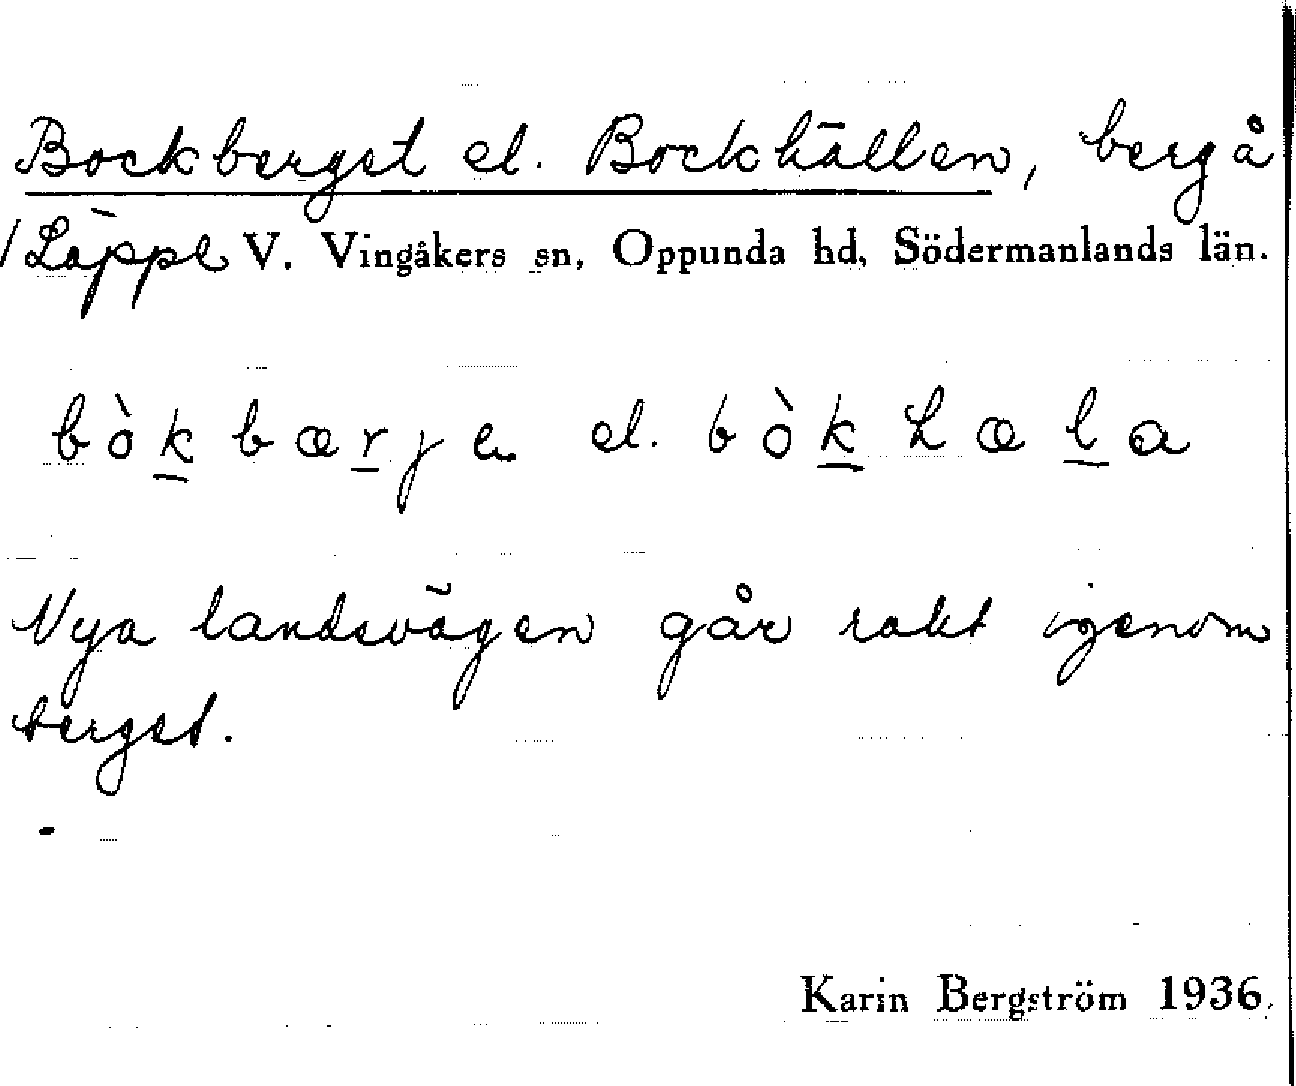 Bockberget el. Bockhällen, berg å
/Läppe V. Vingåkers sn, Oppunda hd, Södermanlands län.
bòk̲bær̲je el. bòk̲hæl̲a
Nya landsvägen går rakt igenom
berget.
Karin Bergström 1936.